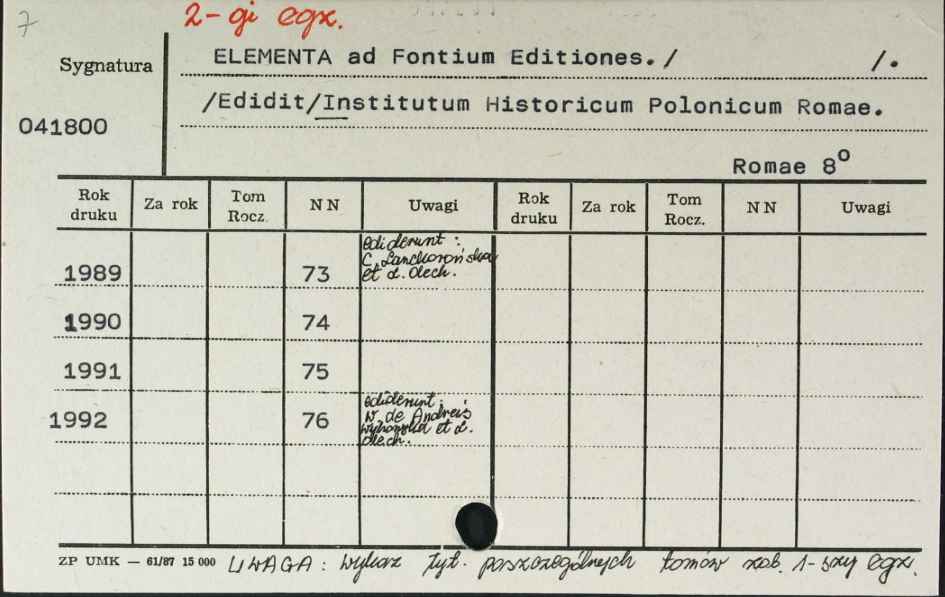 7
2-gi egz.
Sygnatura
ELEMENTA ad Fontium Editiones./ /.
/Edidit/Institutum Historicum Polonicum Romae.
041800
Romae 8º
Rok druku Za rok Tom Rocz. NN Uwagi Rok druku Za rok Tom Rocz. NN Uwagi
1989 73 ediderunt : C. Lanckorońska et L. Olech.
1990 74
1991 75
1992 76 ediderunt : W. de Andreis Wyhowska et L. Olech.
ZP UMK — 61/87 15 000 UWAGA : wykaz tyt. poszczególnych tomów zob. 1-szy egz.